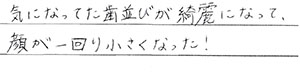 気になってた歯並びが綺麗になって、
顔が一回り小さくなった!